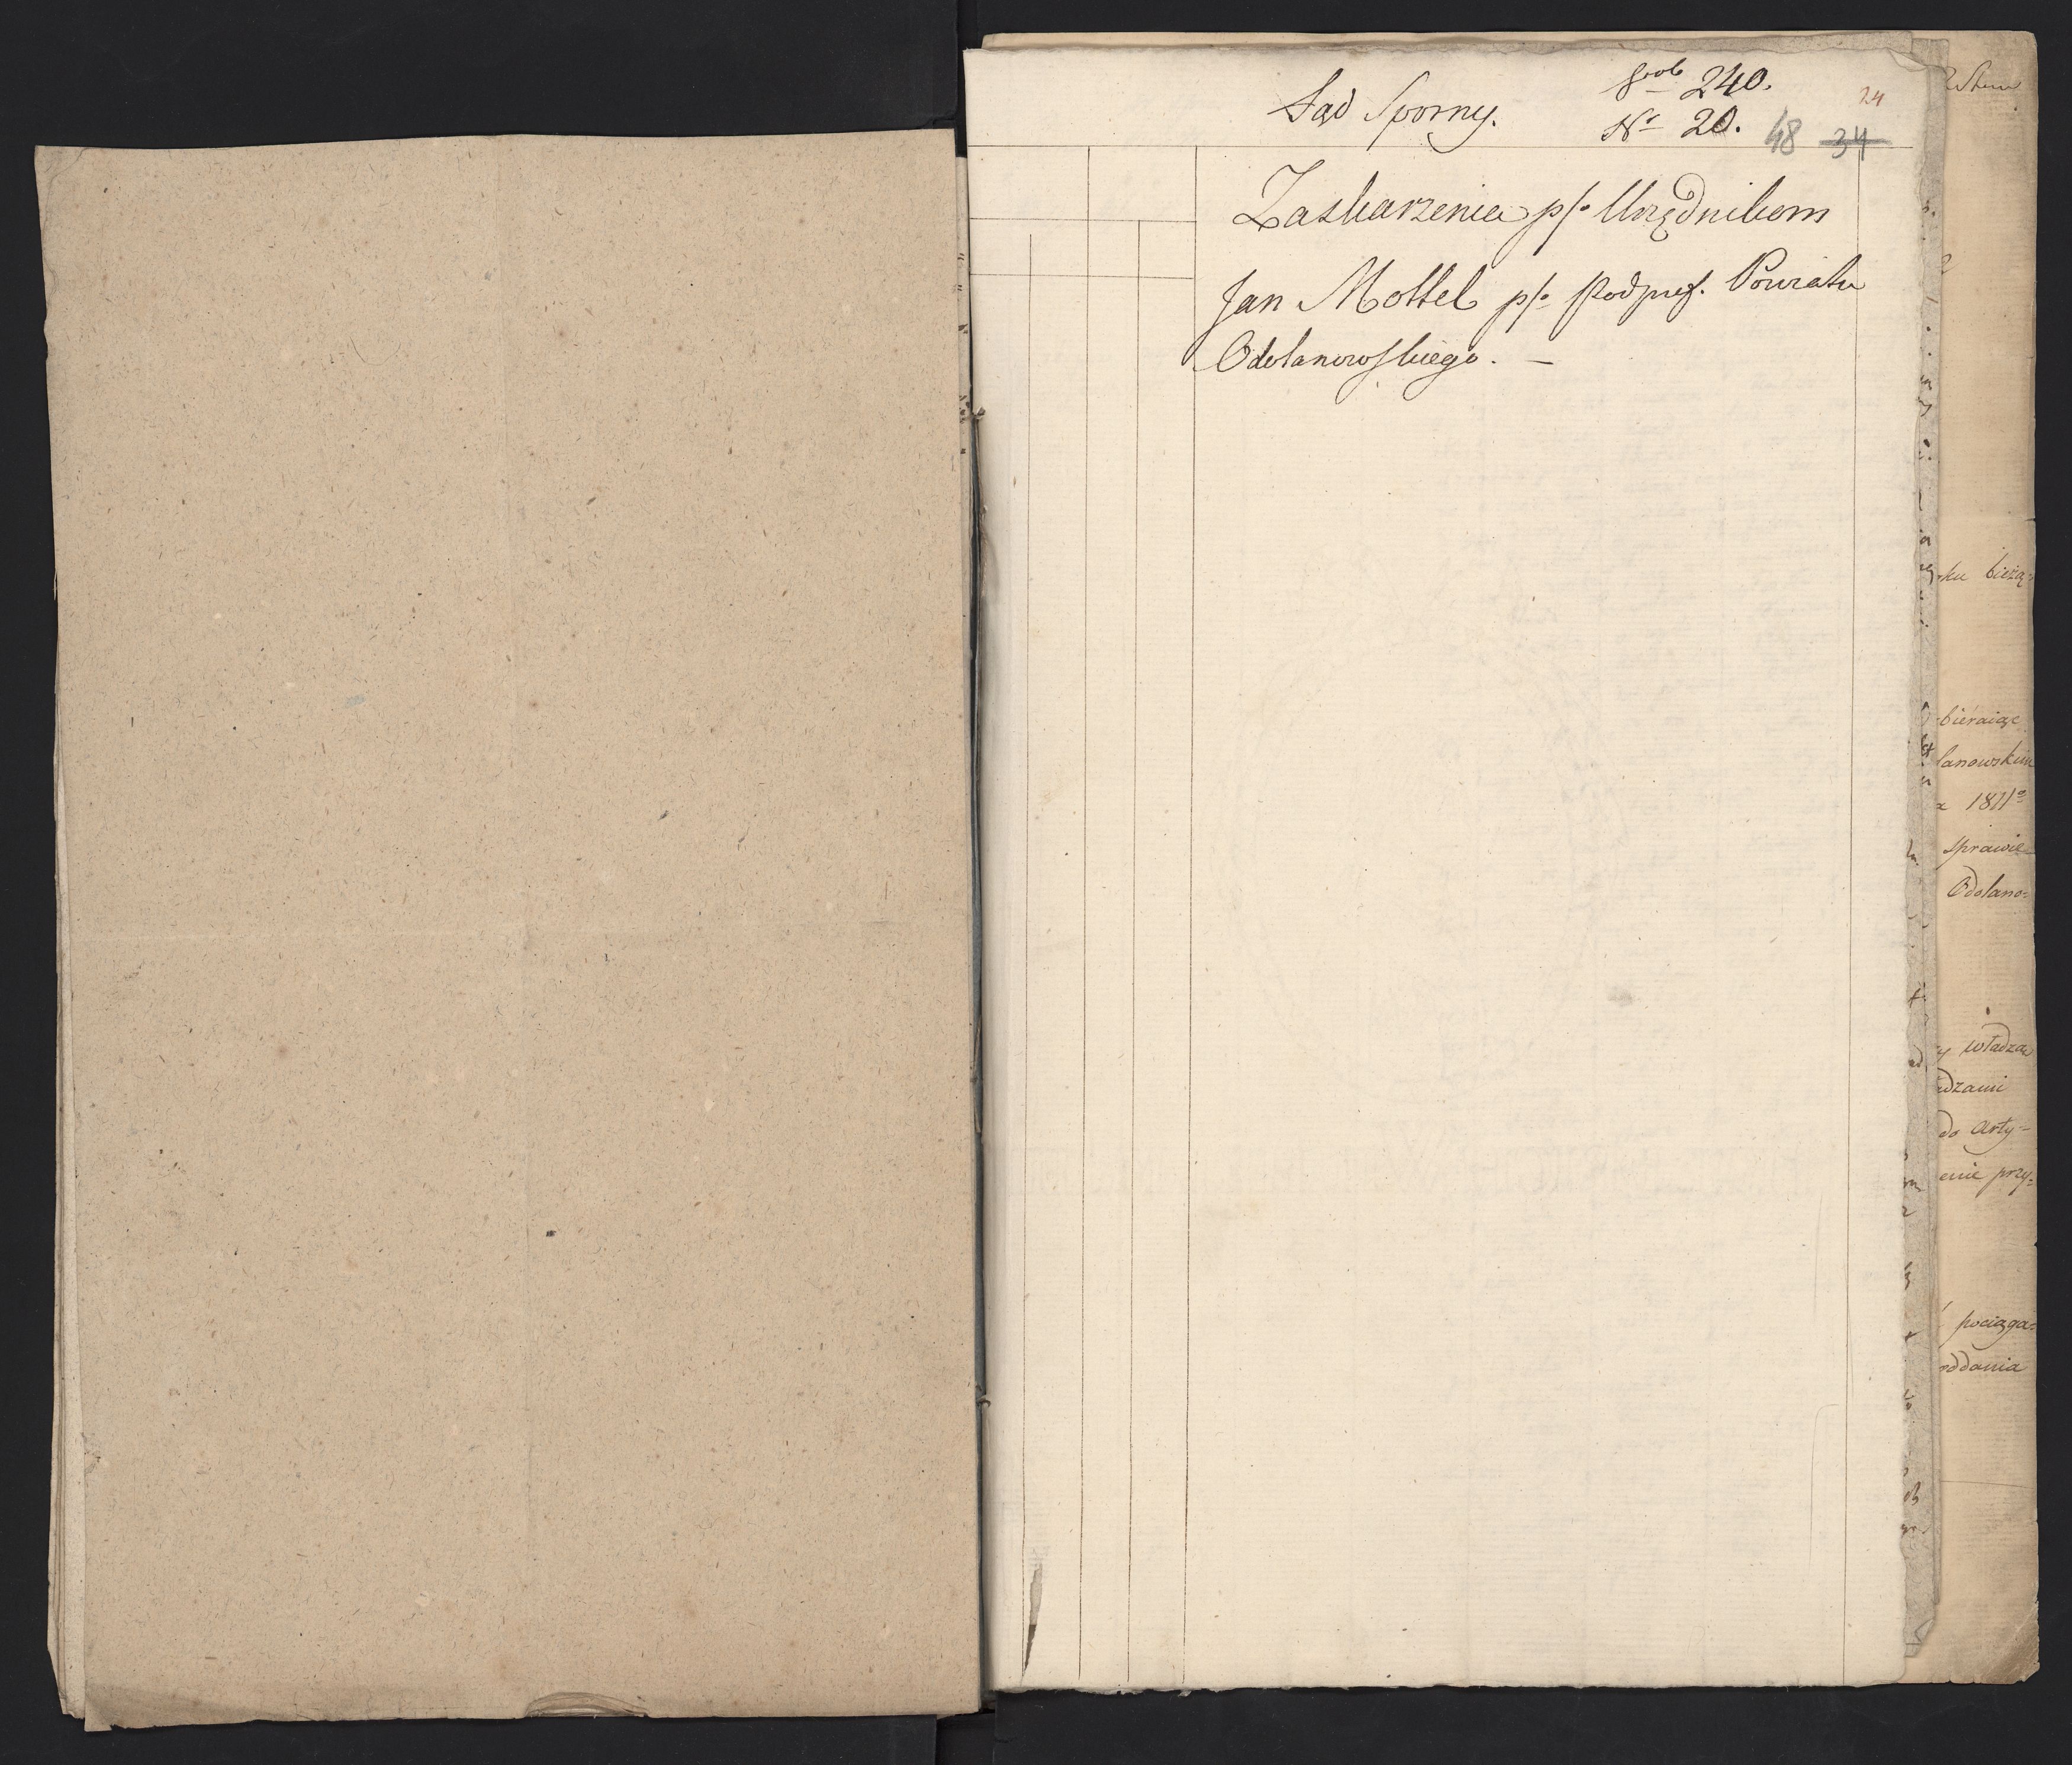 Sąd Sporny.
240.
No 20.
24
48 34
Zaskarzenia p/o Urzędnikom
Jan Mottel p/o Podpref. Powiatu
Odolanowskiego. —
ku bieżą=
bieraiąc
lanowskim
1811o
sprawie
Odolano=
y władzą
dzami
do Arty=
enie przy=
pociąga=
oddania